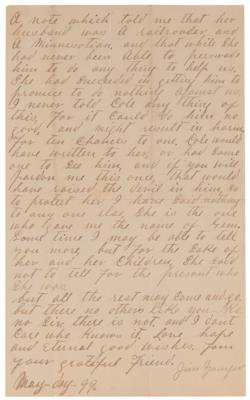 A note which told me that her
husband was A railroader, and
A Minnesotian, and that while she
had never been able to persuade
him to do any thing to help us,
She had succeeded in getting him to
promise to do nothing against us.
I never told Cole any thing of
this, for it could do him no
good, and might result in harm,
for ten chances to one Cole would
have written to her, or had some
one to see him, and if you will
pardon me this once, that would
have raised the devil in him, so
to protect her I have said nothing
to any one else. She is the one
who gave me the name of Gem.
Some time I may be able to tell
you more, but for the sake of
her and her children, She said
not to tell for the present who
she was.
but all the rest may come and go
but there no others like you. No,
no Sir, there is not, and I dont
care who knows it. Love, hope
and eternal good wishes. from
your grateful friend.
Jim Younger
May- -99.